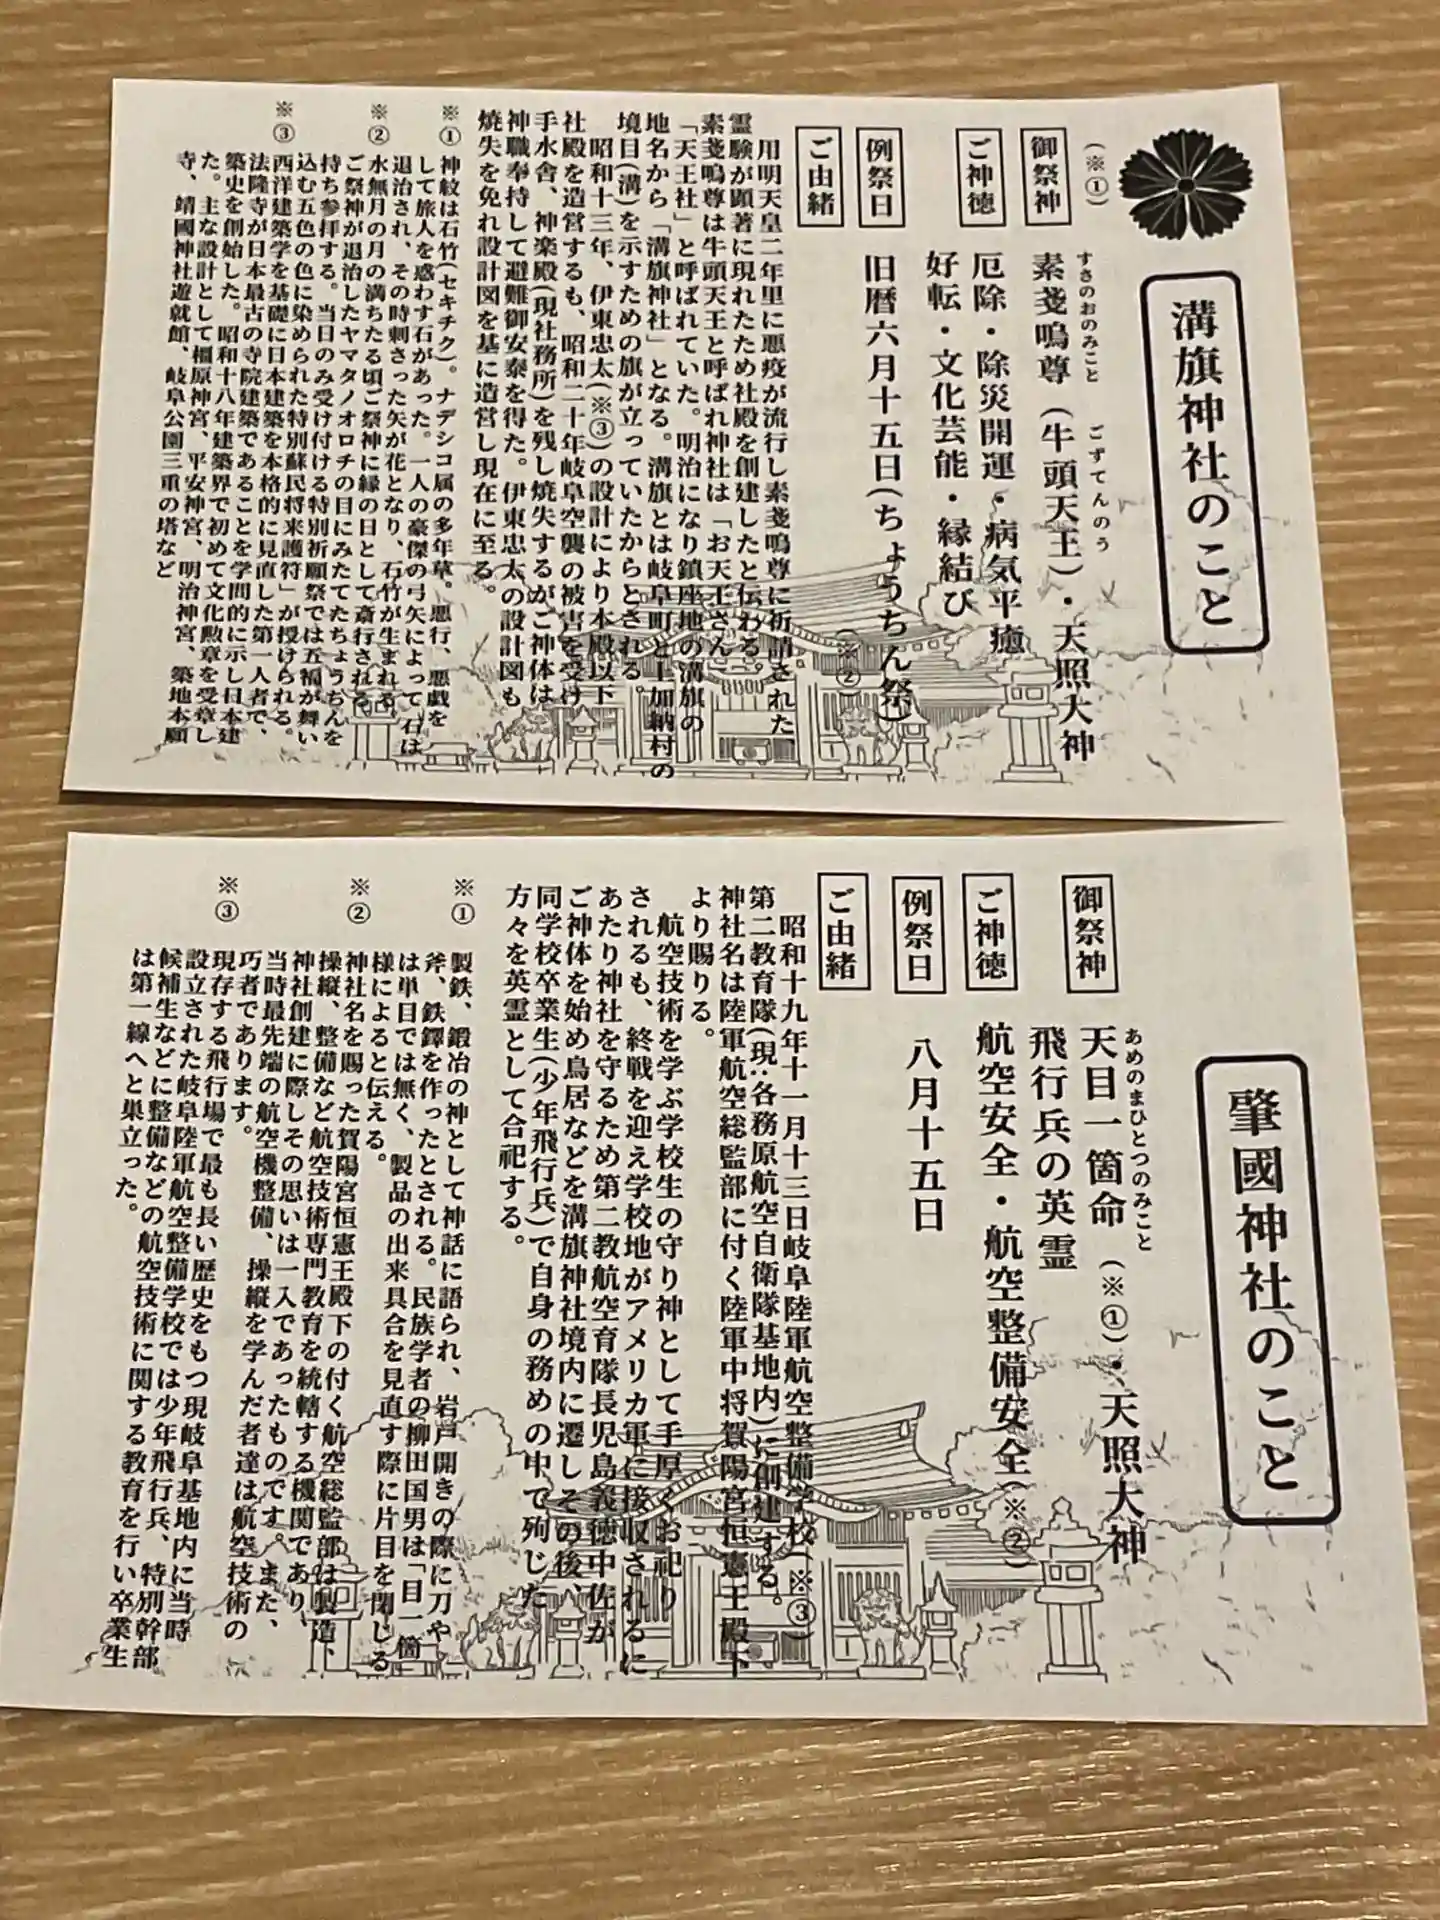 溝旗神社のこと
(※①)
御祭神
素戔嗚尊(牛頭天王)・天照大神
すさのおのみこと
ごずてんのう
ご神徳
厄除・除災開運・病気平癒
好転・文化芸能・縁結び
例祭日
旧暦六月十五日(ちょうちん祭)
(※②)
ご由緒
用明天皇二年里に悪疫が流行し素戔嗚尊に祈請された
霊験が顕著に現れたため社殿を創建したと伝わる。
素戔嗚尊は牛頭天王と呼ばれ神社は「お天王さん」
「天王社」と呼ばれていた。明治になり鎮座地の溝旗の
地名から「溝旗神社」となる。溝旗とは岐阜町と上加納村の
境目(溝)を示すための旗が立っていたからとされる。
昭和十三年、伊東忠太(※③)の設計により本殿以下
社殿を造営するも、昭和二十年岐阜空襲の被害を受け
手水舎、神楽殿(現社務所)を残し焼失するがご神体は
神職奉持して避難御安泰を得た。伊東忠太の設計図も
焼失を免れ設計図を基に造営し現在に至る。
※①
神紋は石竹(セキチク)。ナデシコ属の多年草。悪行、悪戯を
して旅人を惑わす石があった。一人の豪傑の弓矢によって石は
退治され、その時刺さった矢が花となり、石竹が生まれる。
※②
水無月の月の満ちたる頃ご祭神に縁の日として斎行される。
ご祭神が退治したヤマタノオロチの目にみたてたちょうちんを
持ち参拝する。当日のみ受け付ける特別祈願祭では五福が舞い
込む五色の色に染められた特別蘇民将来護符」が授けられる。
※③
西洋建築学を基礎に日本建築を本格的に見直した第一人者で、
法隆寺が日本最古の寺院建築であることを学問的に示し日本建
築史を創始した。昭和十八年建築界で初めて文化勲章を受章し
た。主な設計として橿原神宮、平安神宮、明治神宮、築地本願
寺、靖國神社遊就館、岐阜公園三重の塔など
肇國神社のこと
御祭神
天目一箇命(※①)・天照大神
あめのまひとつのみこと
飛行兵の英霊
ご神徳
航空安全・航空整備安全(※②)
例祭日
八月十五日
ご由緒
昭和十九年十一月十三日岐阜陸軍航空整備学校(※③)
第二教育隊(現:各務原航空自衛隊基地内)に創建する。
神社名は陸軍航空総監部に付く陸軍中将賀陽宮恒憲王殿下
より賜りる。
航空技術を学ぶ学校生の守り神として手厚くお祀り
されるも、終戦を迎え学校地がアメリカ軍に接収されるに
あたり神社を守るため第二教航空育隊長児島義徳中佐が
ご神体を始め鳥居などを溝旗神社境内に遷しその後、
同学校卒業生(少年飛行兵)で自身の務めの中で殉じた
方々を英霊として合祀する。
※①
製鉄、鍛冶の神として神話に語られ、岩戸開きの際に刀や
斧、鉄鐸を作ったとされる。民族学者の柳田国男は「目一箇」
は単目では無く、製品の出来具合を見直す際に片目を閉じる
様によると伝える。
※②
神社名を賜った賀陽宮恒憲王殿下の付く航空総監部は製造、
操縦、整備など航空技術専門教育を統轄する機関であり、
神社創建に際しその思いは一入であったものです。また、
当時最先端の航空機整備、操縦を学んだ者達は航空技術の
巧者であります。
※③
現存する飛行場で最も長い歴史をもつ現岐阜基地内に当時
設立された岐阜陸軍航空整備学校では少年飛行兵、特別幹部
候補生などに整備などの航空技術に関する教育を行い卒業生
は第一線へと巣立った。